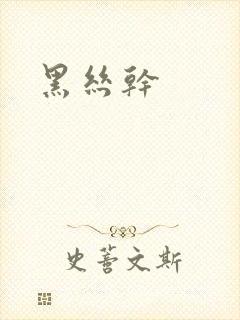 黑丝幹
史蒈文斯